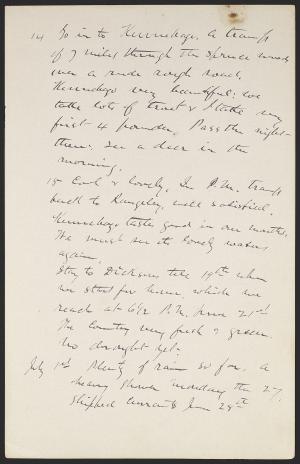 14 Go in to Kennebago, a tramp
of 7 miles through the spruce woods
over a rude rough road.
Kennebago very beautiful: we
take lots of trout & I take my
first 4 pounder. Pass the night
there: see a deer in the
morning.
15 Cool & lovely. In P.M. tramp
back to Rangeley, well satisfied.
Kennebago tastes good in our mouths.
We must see its lovely waters
again.
Stay to Dickson's till 19th when
we start for home, which we
reach at 6½ P.M. June 21st
The country very fresh & green.
No drought yet.
July 1st Plenty of rain so far. A
heavy shower Monday the 27,
shipped currants June 28th